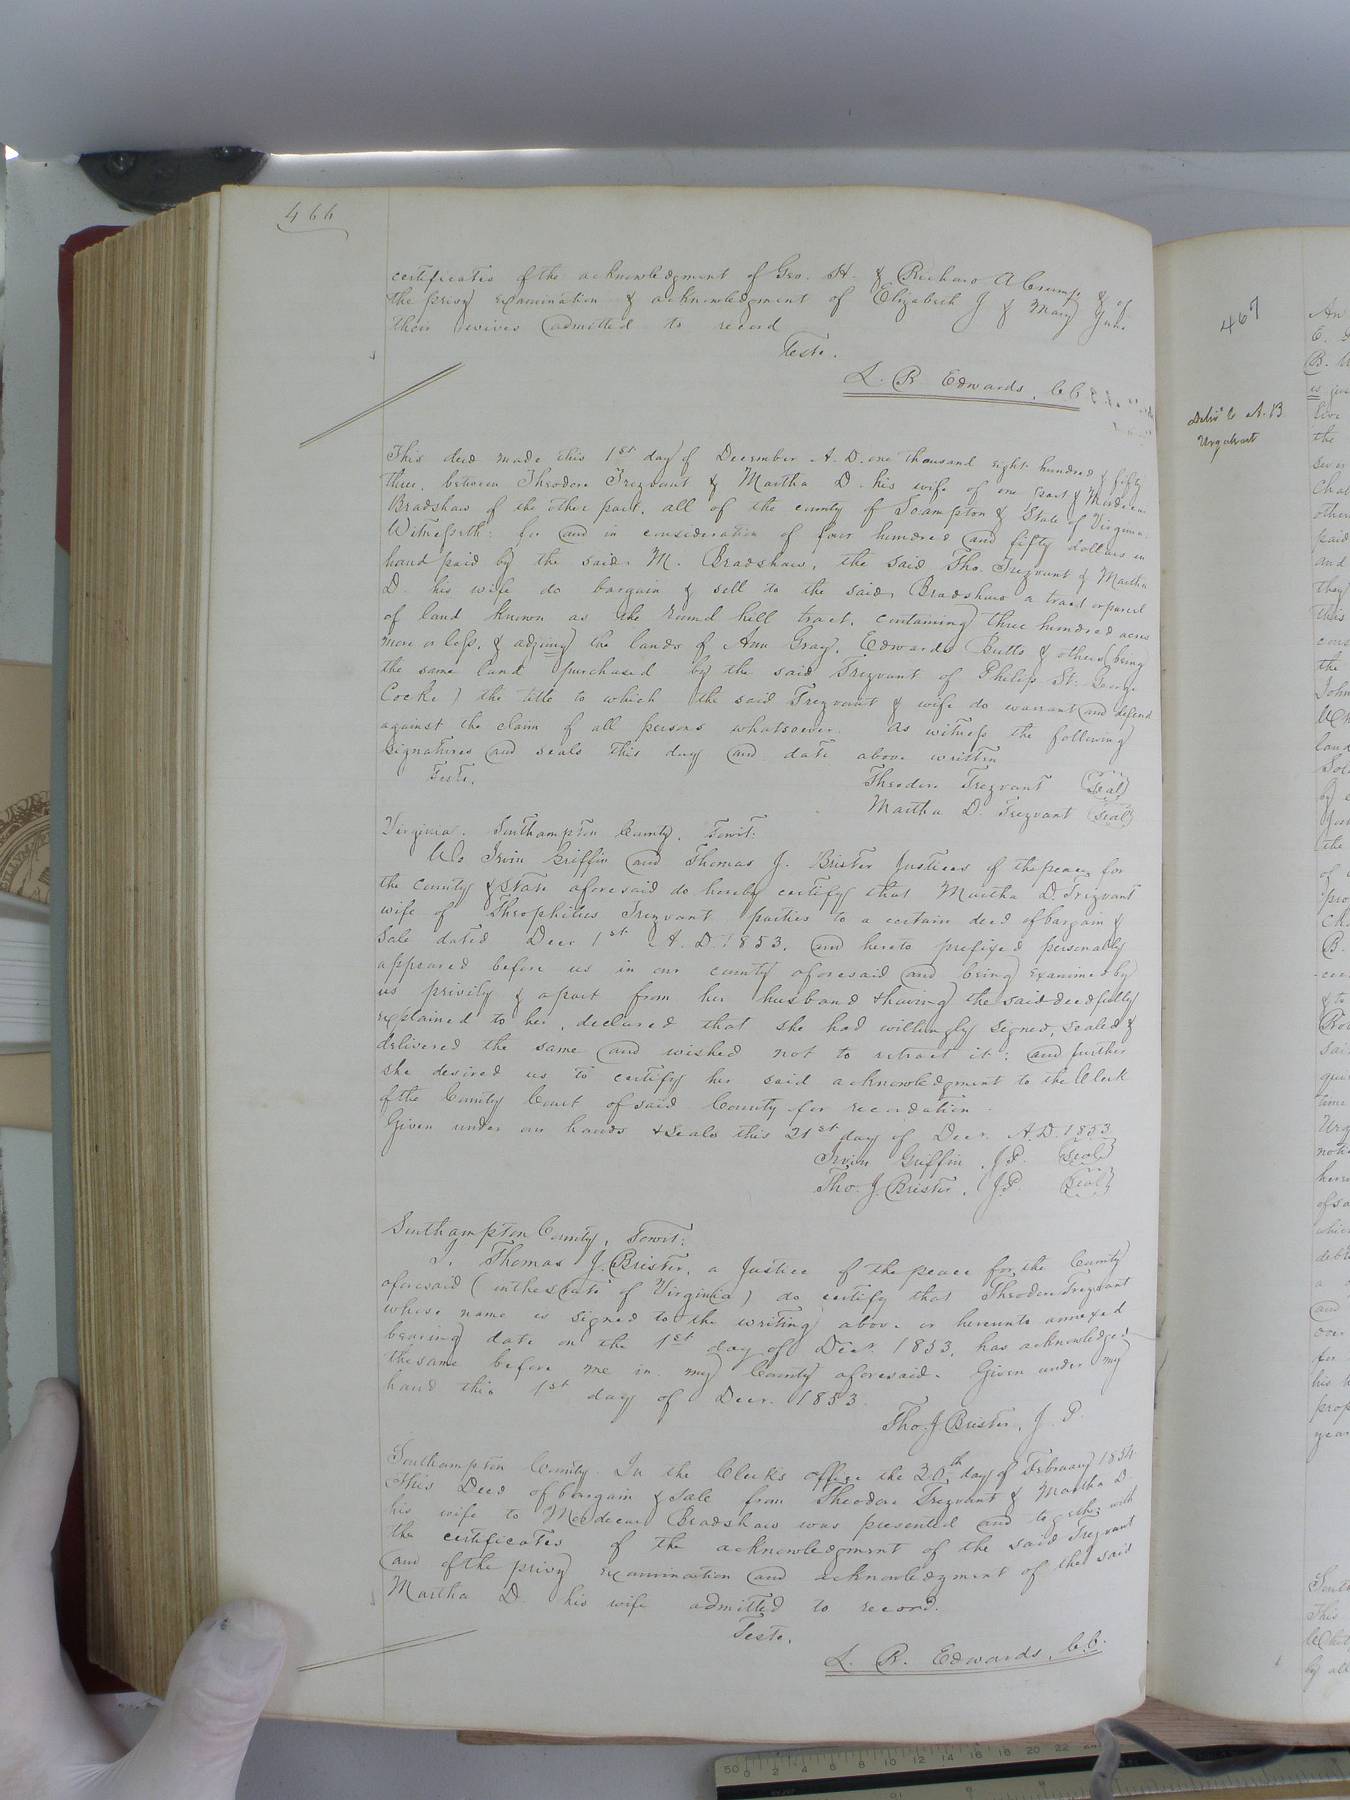 466
certificates of the acknowledgment of Geo. H. & Richard A Crump & of
the privy examination & acknowledgment of Elizabeth J & Mary Jane
their wives admitted to record
Teste.
L. R. Edwards, C.C.
This deed made this 1st day of December A. D. one thousand eight hundred & fifty
three, between Theodore Trezvant & Martha D. his wife of one part &
Bradshaw of the other part, all of the county of Soampton & State of Virginia
Witnesseth: for and in consideration of four hundred and fifty dollars in
hand paid by the said M. Bradshaw, the said Tho. Trezvant & Martha
D. his wife do bargain & sell to the said Bradshaw a tract or parcel
of land known as the round hill tract, containing three hundred acres
more or less, & adjoing the lands of Ann Gray, Edwards Butts & others (being
the same land purchased by the said Trezvant of Philip St. George
Cocke) the title to which the said Trezvant & wife do warrant and defend
against the claim of all persons whatsoever. As witness the following
signatures and seals this day and date above written
Teste.
Theodore Trezvant (Seal)
Martha D. Trezvant (Seal)
Virginia. Southampton County, Towit:
We Irvin Griffin and Thomas J. Brister Justices of the peace for
the county & State aforesaid do hereby certify that Martha D. Trezvant
wife of Theophilus Trezvant parties to a certain deed of bargain &
Sale dated Decr 1st A. D. 1853, and hereto prefixed personally
appeared before us in our county aforesaid and being examined by
us privily & apart from her husband & having the said deed fully
explained to her, declared that she had willingly signed, sealed &
delivered the same and wished not to retract it: and further
she desired us to certify her said acknowledgment to the Clerk
of the County Court of said County for recordation.
Given under our hands & seals this 21st day of Decr. A.D. 1853
Irvin Griffin, J.P. (Seal)
Tho. J. Brister, J.P. (Seal)
Southampton County, Towit:
I, Thomas J. Brister, a Justice of the peace for the County
aforesaid (in the State of Virginia) do certify that Theodore Trezvant
whose name is signed to the writing above or hereunto annexed
bearing date on the 1st day of Decr. 1853, has acknowledged
the same before me in my County aforesaid. Given under my
hand this 1st day of Decr. 1853
Tho. J Brister, J. P.
Southampton County. In the Clerk's office the 20th day of February 1854.
This Deed of bargain & Sale from Theodore Trezvant & Martha D.
his wife to Bradshaw was presented and together with
the certificates of the acknowledgment of the said Trezvant
and of the privy examination and acknowledgment of the said
Martha D his wife admitted to record.
Teste.
L. R. Edwards, C.C.
467
Deliv'd to A. B
Urquhart